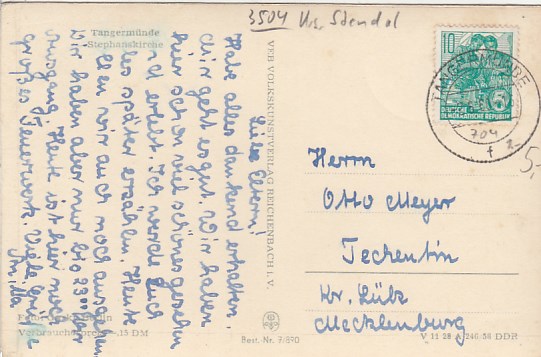 3504 Krs. Stendal
Tangermünde
Stephanskirche
Liebe Eltern!
Habe alles dankend erhalten.
Mir geht es gut. Wir haben
hier schon viel schönes gesehen
und erlebt. Ich werde Euch
alles später erzählen. Heute
wir auch noch ausgehen.
Wir haben aber nur bis 23⁰⁰ Uhr
Ausgang. Heute ist hier noch
großes Feuerwerk. Viele Grüße
VEB VOLKSKUNSTVERLAG REICHENBACH I. V.
10
5
DEUTSCHE
DEMOKRATISCHE REPUBLIK
TANGERMÜNDE
704
f
2.
5,-
Herrn
Otto Meyer
Techentin
Kr. Lübz
Mecklenburg
Verbraucherpreis -.15 DM
Best.-Nr. 3/890
V 11 28 A 246/56 DDR